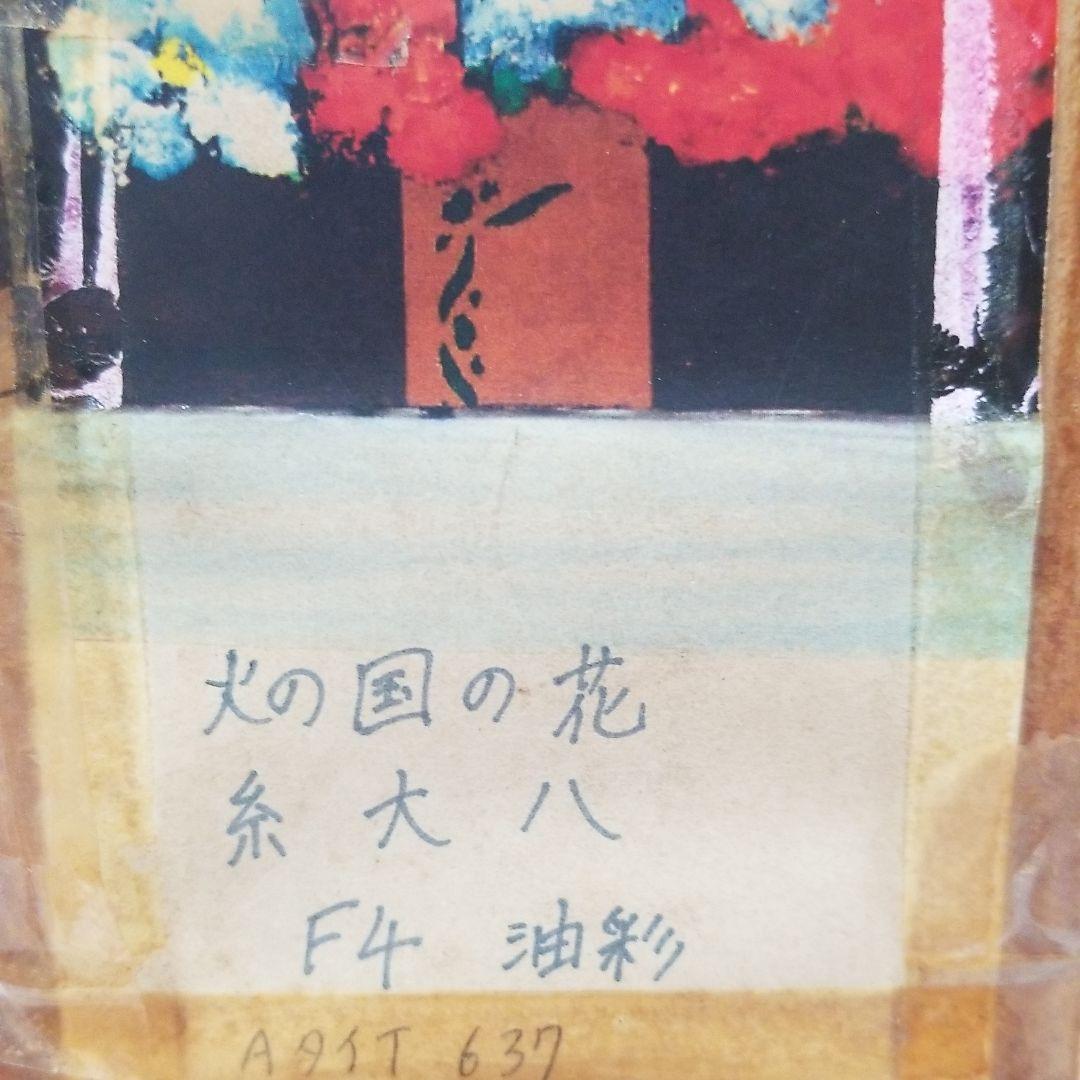 火の国の花
糸 大 八
F4 油彩
AタイT 637